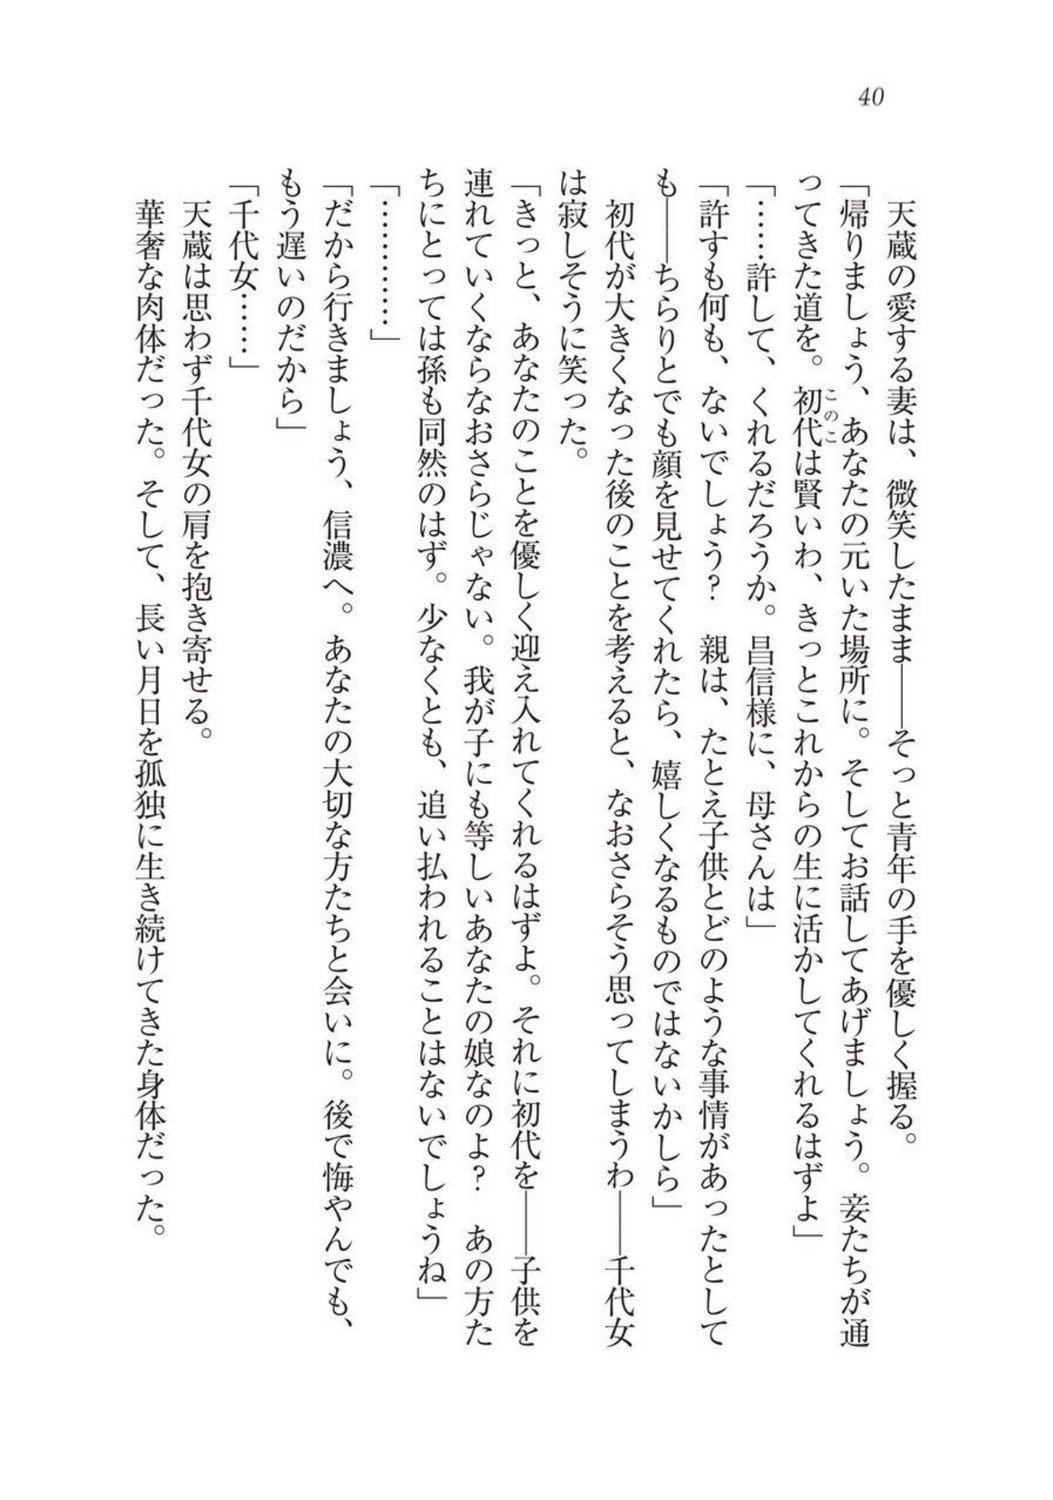 40
天蔵の愛する妻は、微笑したまま――そっと青年の手を優しく握る。
「帰りましょう、あなたの元いた場所に。そしてお話してあげましょう。妾たちが通
ってきた道を。初代は賢いわ、きっとこれからの生に活かしてくれるはずよ」
このこ
「……許して、くれるだろうか。昌信様に、母さんは」
「許すも何も、ないでしょう？　親は、たとえ子供とどのような事情があったとして
も――ちらりとでも顔を見せてくれたら、嬉しくなるものではないかしら」
初代が大きくなった後のことを考えると、なおさらそう思ってしまうわ――千代女
は寂しそうに笑った。
「きっと、あなたのことを優しく迎え入れてくれるはずよ。それに初代を――子供を
連れていくならなおさらじゃない。我が子にも等しいあなたの娘なのよ？　あの方た
ちにとっては孫も同然のはず。少なくとも、追い払われることはないでしょうね」
「…………」
「だから行きましょう、信濃へ。あなたの大切な方たちと会いに。後で悔やんでも、
もう遅いのだから」
「千代女……」
天蔵は思わず千代女の肩を抱き寄せる。
華奢な肉体だった。そして、長い月日を孤独に生き続けてきた身体だった。